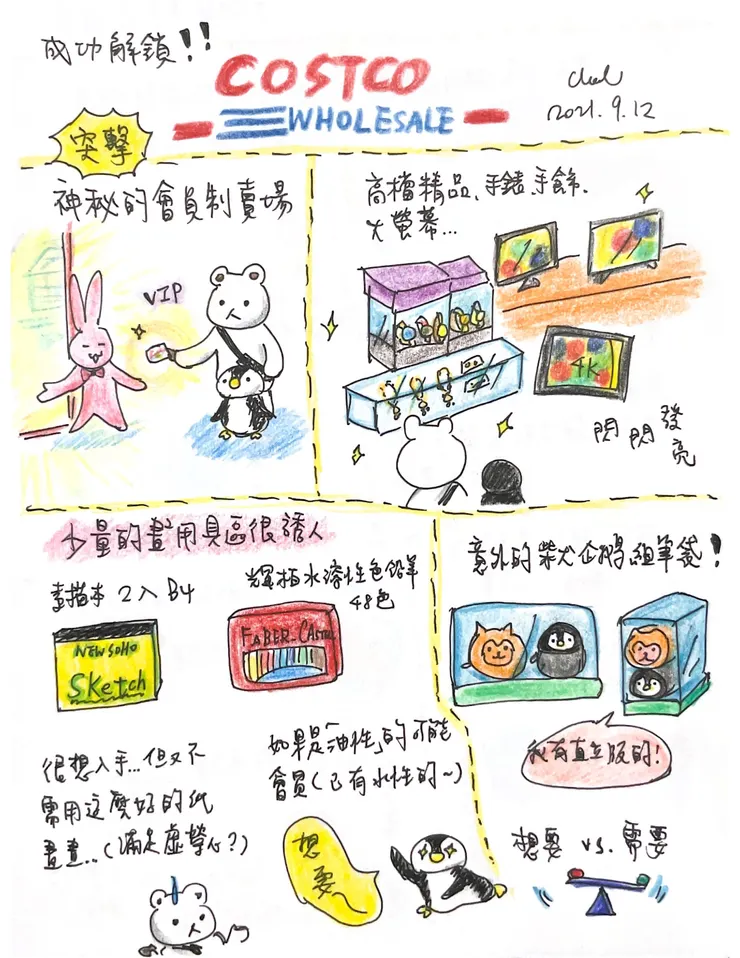 成功解鎖!!
COSTCO
WHOLESALE
2021.9.12
突擊
神秘的會員制賣場
VIP
高檔精品、手錶、手飾、
大螢幕...
4K
閃閃發亮
少量的畫用具區很誘人
素描本 2入 B4
輝柏水溶性色鉛筆
48色
NEWSOHO
Sketch
FABER-CASTELL
很想入手...但又不
需用這麼好的紙
畫畫..(滿足虛榮心?)
如果是「油性」的可能
會買(已有水性的~)
想要~
意外的柴犬企鵝組筆袋!
我有直立版的!
想要 vs. 需要